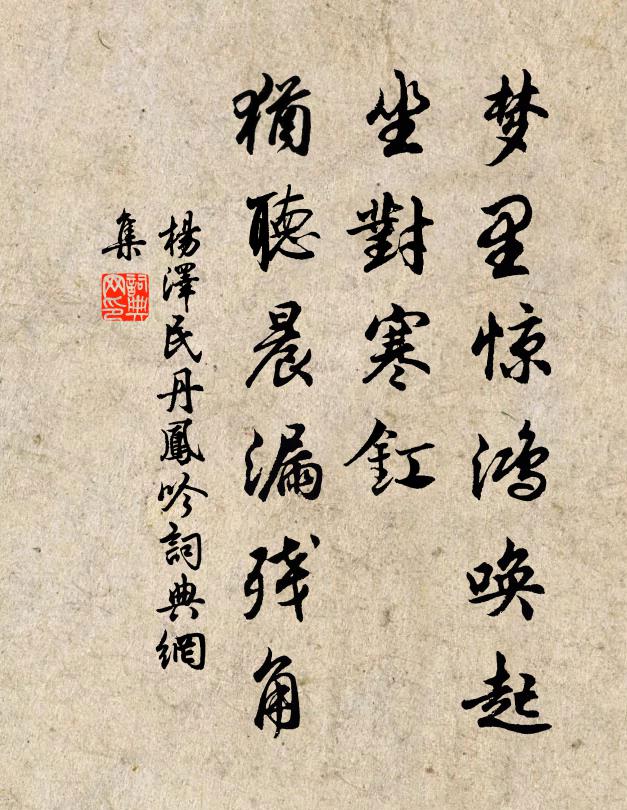 梦里惊鸿唤起
坐對寒釭
猶聽晨漏残角
楊澤民丹鳳吟詞典網
集
詞典
网印